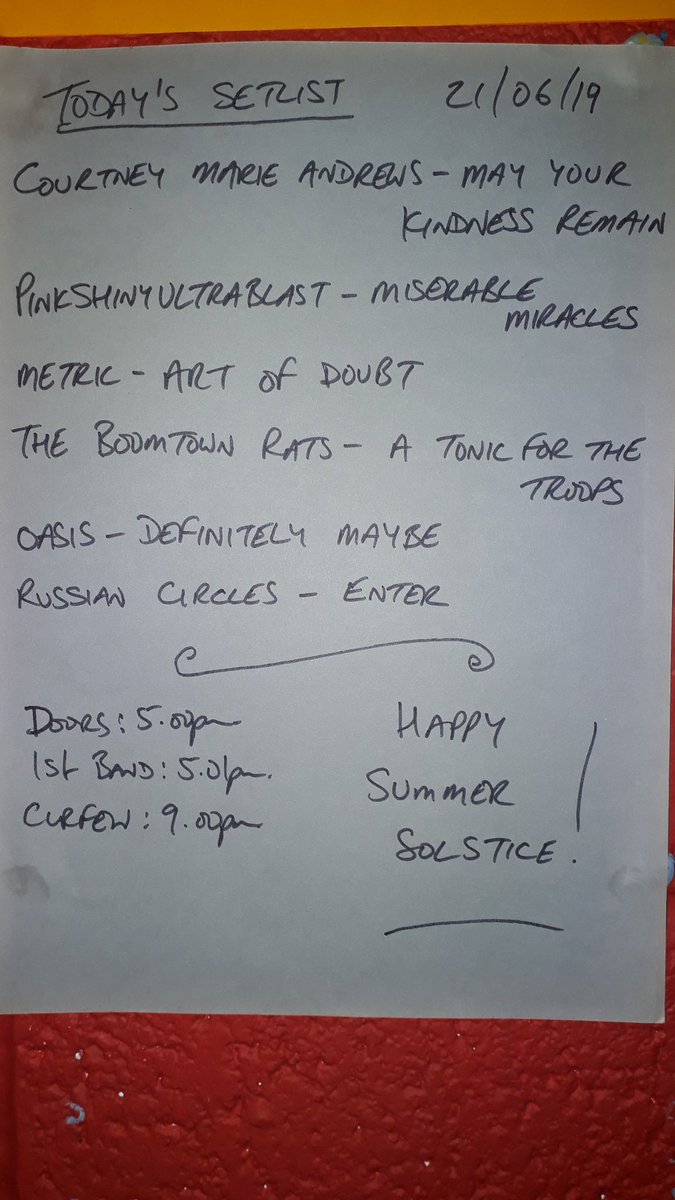 TODAY'S SETLIST 21/06/19
COURTNEY MARIE ANDREWS - MAY YOUR
KINDNESS REMAIN
PINKSHINYULTRABLAST - MISERABLE
MIRACLES
METRIC - ART OF DOUBT
THE BOOMTOWN RATS - A TONIC FOR THE
TROOPS
OASIS - DEFINITELY MAYBE
RUSSIAN CIRCLES - ENTER
DOORS: 5.00pm
1st BAND: 5.01pm.
CURFEW: 9.00pm
HAPPY
SUMMER
SOLSTICE!